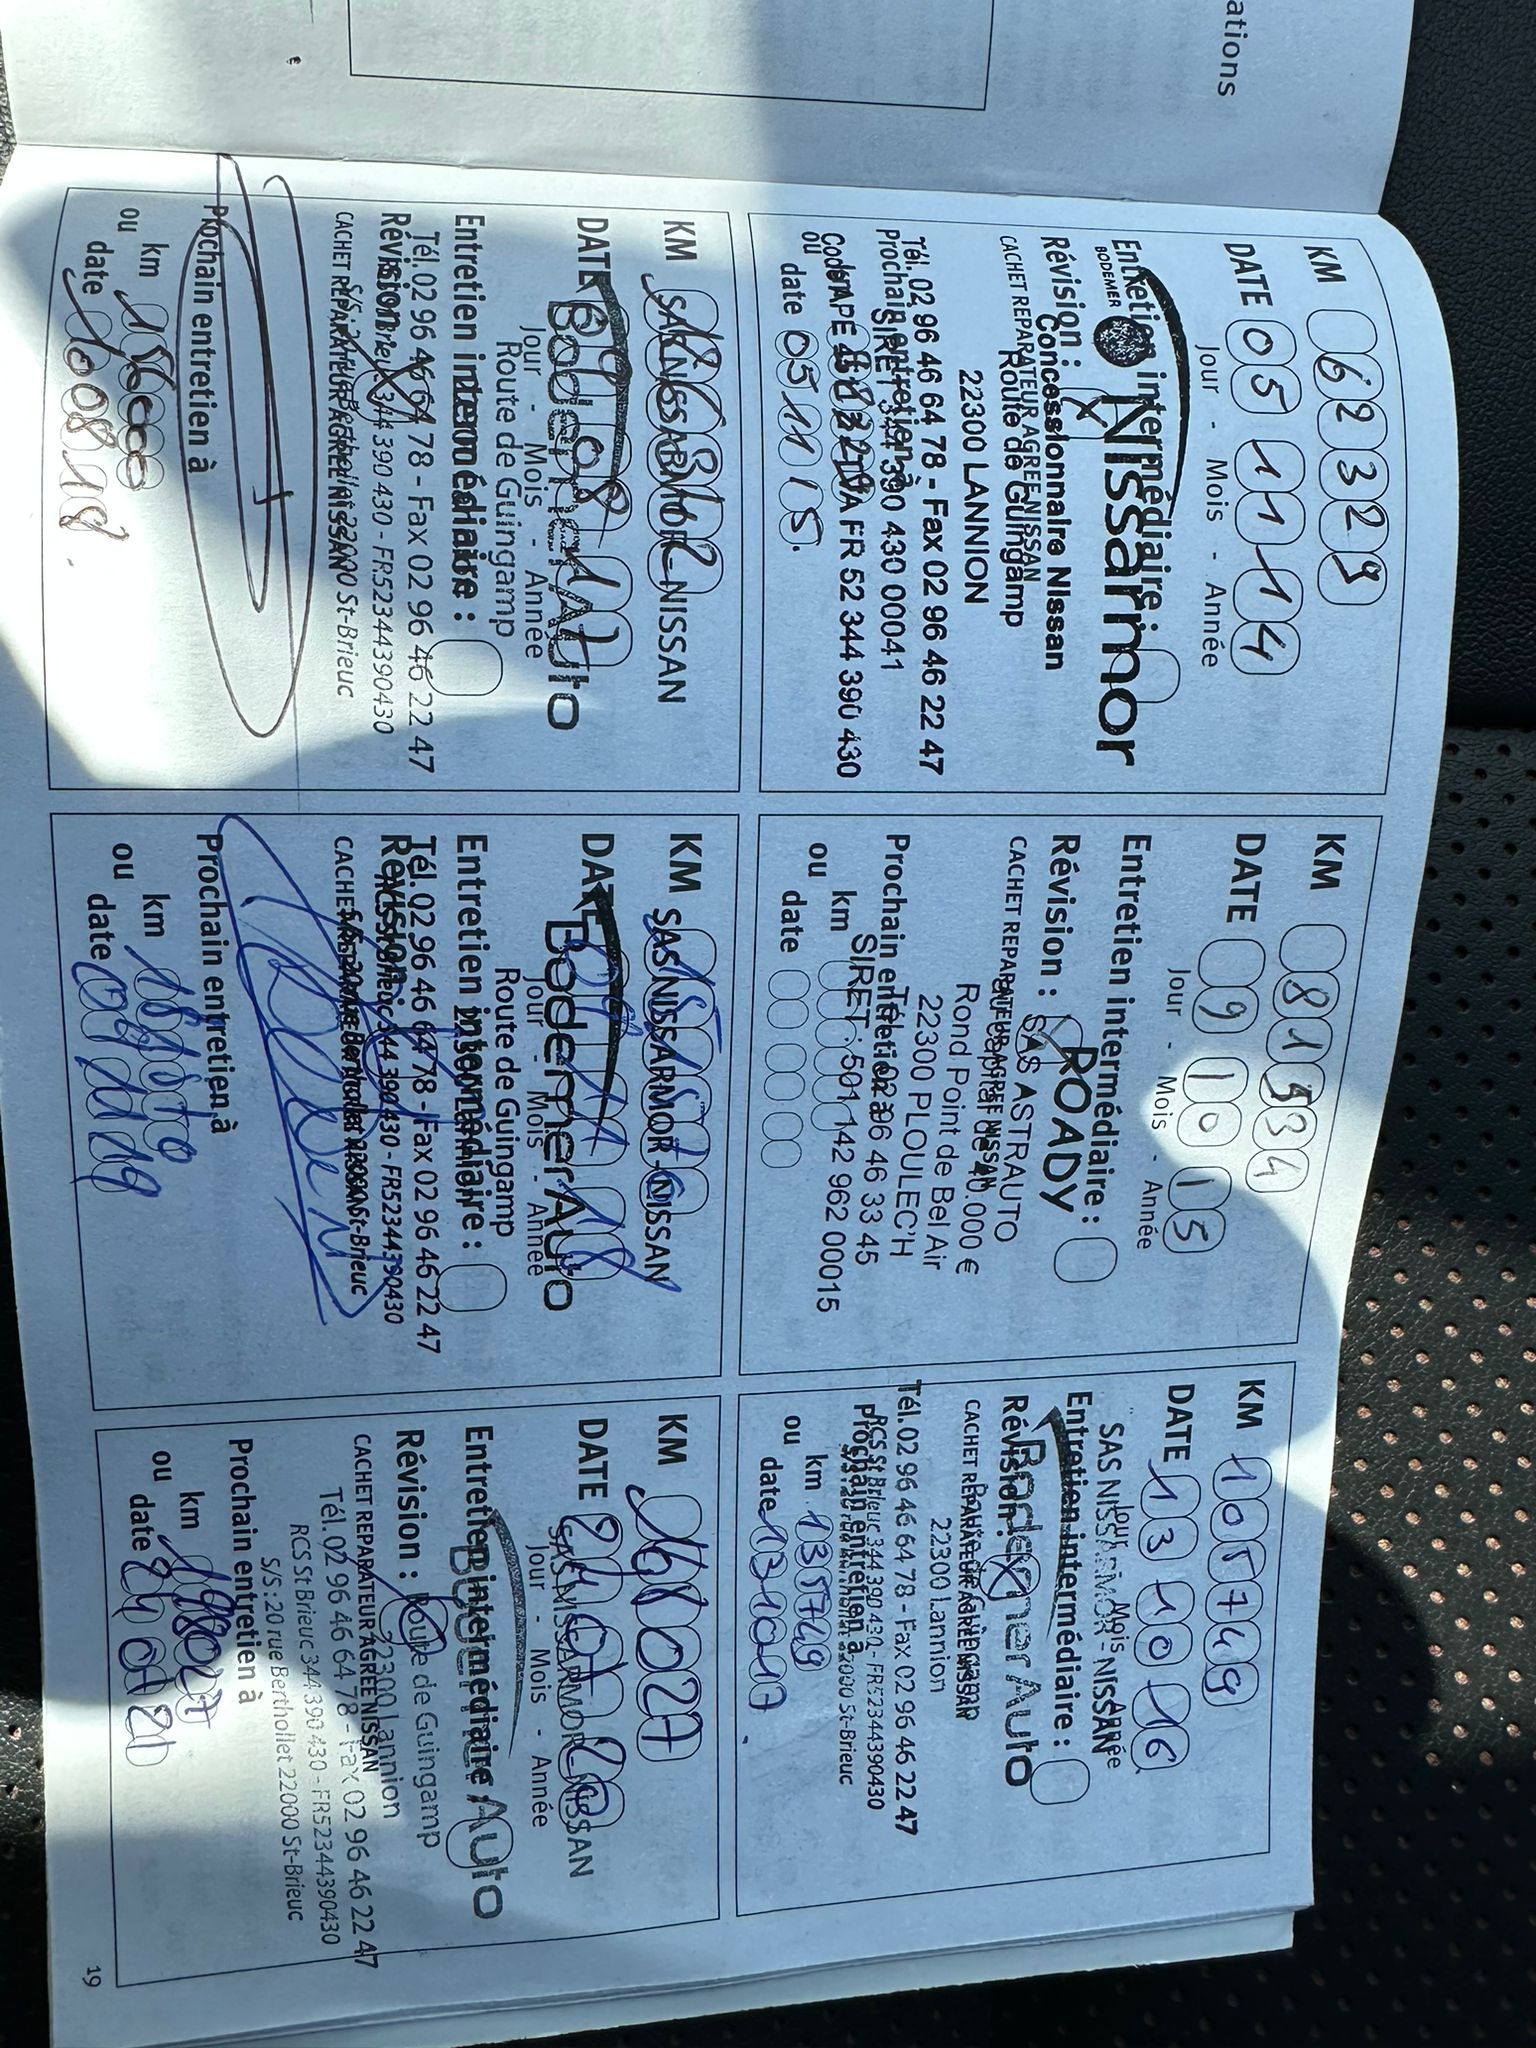 ations
KM 62329
DATE 05 11 14
Jour - Mois - Année
Entretien intermédiaire :
BODEMER
Nissarmor
Révision : X
Concessionnaire Nissan
CACHET REPARATEUR AGREE NISSAN
Route de Guingamp
22300 LANNION
Tél. 02 96 46 64 78 - Fax 02 96 46 22 47
Prochain entretien à
SIRET 344 390 430 00041
FR 52 344 390 430
ou date 05 11 15.
KM 81534
DATE 9 10 15
Jour - Mois - Année
Entretien intermédiaire :
Révision :
ROADY
SAS ASTRAUTO
CACHET REPARATEUR AGREE NISSAN
au capital de 40.000 €
Rond Point de Bel Air
22300 PLOULEC'H
Tél. 02 96 46 33 45
Prochain entretien à
SIRET : 501 142 962 00015
ou km
date
KM 105749
DATE 13 10 16
Jour - Mois - Année
SAS NISSARMOR - NISSAN
Entretien intermédiaire :
Bodemer Auto
Révision : X
CACHET REPARATEUR AGREE NISSAN
Route de Guingamp
22300 Lannion
Tél. 02 96 46 64 78 - Fax 02 96 46 22 47
RCS St Brieuc 344 390 430 - FR52344390430
Prochain entretien à
22000 St-Brieuc
ou km 135749
date 13 10 17
KM
SAS NISSARMOR - NISSAN
DATE
BodemerAuto
Jour - Mois - Année
Route de Guingamp
Entretien intermédiaire :
Tél. 02 96 46 64 78 - Fax 02 96 46 22 47
Révision : X
RCS St Brieuc 344 390 430 - FR52344390430
CACHET REPARATEUR AGREE NISSAN
22000 St-Brieuc
Prochain entretien à
ou km
date 10 08 18.
KM
SAS NISSARMOR - NISSAN
DATE
BodemerAuto
Jour - Mois - Année
Route de Guingamp
Entretien intermédiaire :
Tél. 02 96 46 64 78 - Fax 02 96 46 22 47
Révision :
RCS St Brieuc 344 390 430 - FR52344390430
CACHET REPARATEUR AGREE NISSAN
St-Brieuc
Prochain entretien à
ou km
date
KM 168027
DATE 24 07 20
SAS NISSARMOR - NISSAN
Jour - Mois - Année
Entretien intermédiaire :
Bodemer Auto
Révision :
Route de Guingamp
22300 Lannion
CACHET REPARATEUR AGREE NISSAN
Tél. 02 96 46 64 78 - Fax 02 96 46 22 47
RCS St Brieuc 344 390 430 - FR52344390430
S/S : 20 rue Berthollet 22000 St-Brieuc
Prochain entretien à
ou km 198027
date 24 07 21
19